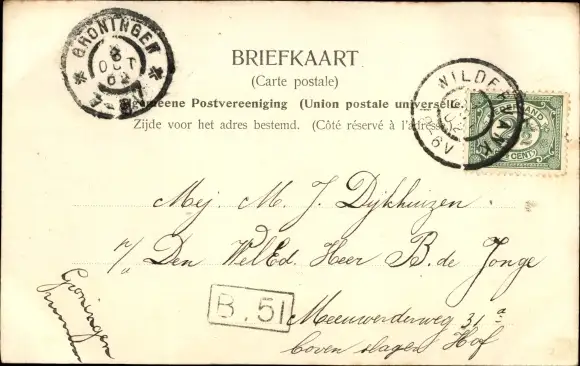 GRONINGEN
8
OCT
02
BRIEFKAART
(Carte postale)
Algemeene Postvereeniging (Union postale universelle.)
Zijde voor het adres bestemd. (Côté réservé à l'adresse)
WILDERVANK
NEDERLAND
CENT
Mej. M. J. Dijkhuizen
p/a Den WelEd. Heer B. de Jonge
B.51
Meeuwerderweg 31a
boven slagen Hof
Groningen